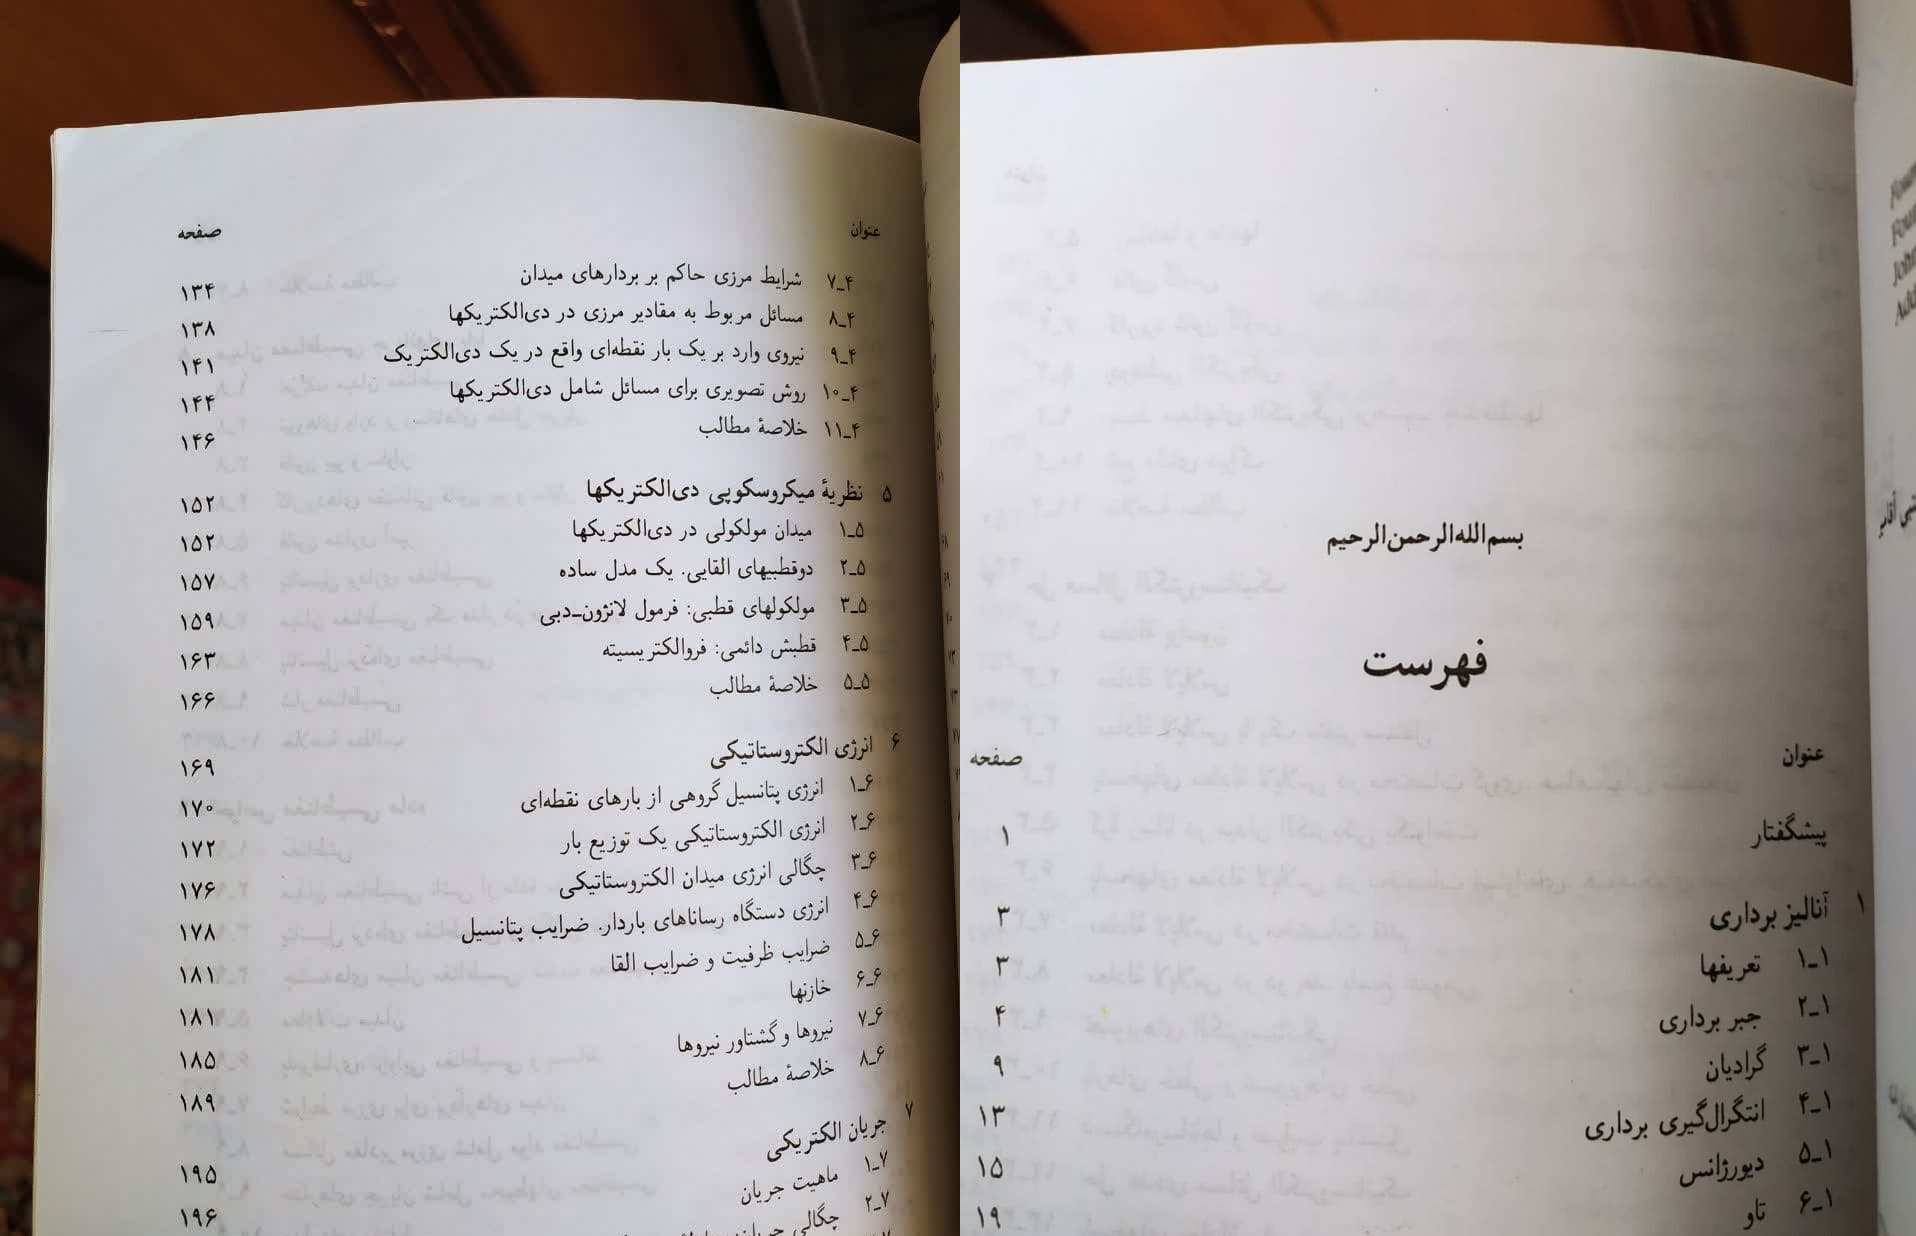 بسم‌الله‌الرحمن‌الرحیم
فهرست
عنوان صفحه
پیشگفتار ۱
۱ آنالیز برداری ۳
۱ـ۱ تعریفها ۳
۱ـ۲ جبر برداری ۴
۱ـ۳ گرادیان ۹
۱ـ۴ انتگرال‌گیری برداری ۱۳
۱ـ۵ دیورژانس ۱۵
۱ـ۶ تاو ۱۹
عنوان صفحه
۴ـ۷ شرایط مرزی حاکم بر بردارهای میدان ۱۳۴
۴ـ۸ مسائل مربوط به مقادیر مرزی در دی‌الکتریکها ۱۳۸
۴ـ۹ نیروی وارد بر یک بار نقطه‌ای واقع در یک دی‌الکتریک ۱۴۱
۴ـ۱۰ روش تصویری برای مسائل شامل دی‌الکتریکها ۱۴۴
۴ـ۱۱ خلاصهٔ مطالب ۱۴۶
۵ نظریهٔ میکروسکوپی دی‌الکتریکها ۱۵۲
۵ـ۱ میدان مولکولی در دی‌الکتریکها ۱۵۲
۵ـ۲ دوقطبیهای القایی. یک مدل ساده ۱۵۷
۵ـ۳ مولکولهای قطبی: فرمول لانژون-دبی ۱۵۹
۵ـ۴ قطبش دائمی: فروالکتریسیته ۱۶۳
۵ـ۵ خلاصهٔ مطالب ۱۶۶
۶ انرژی الکتروستاتیکی ۱۶۹
۶ـ۱ انرژی پتانسیل گروهی از بارهای نقطه‌ای ۱۷۰
۶ـ۲ انرژی الکتروستاتیکی یک توزیع بار ۱۷۲
۶ـ۳ چگالی انرژی میدان الکتروستاتیکی ۱۷۶
۶ـ۴ انرژی دستگاه رساناهای باردار. ضرایب پتانسیل ۱۷۸
۶ـ۵ ضرایب ظرفیت و ضرایب القا ۱۸۱
۶ـ۶ خازنها ۱۸۱
۶ـ۷ نیروها و گشتاور نیروها ۱۸۵
۶ـ۸ خلاصهٔ مطالب ۱۸۹
۷ جریان الکتریکی ۱۹۵
۷ـ۱ ماهیت جریان ۱۹۶
۷ـ۲ چگالی